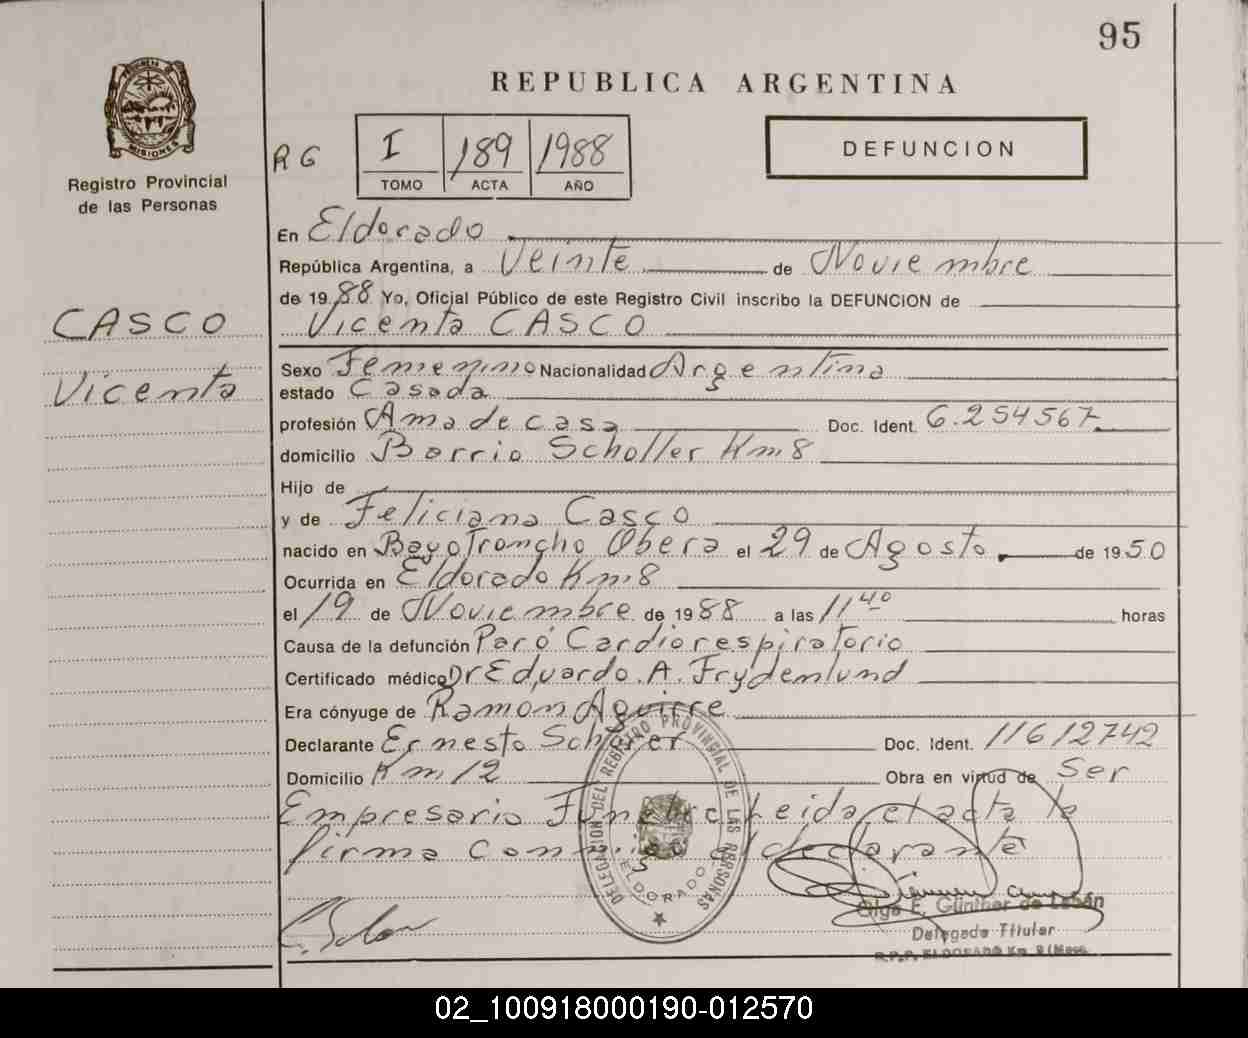 95
REPUBLICA ARGENTINA
PROVINCIA DE
MISIONES
Registro Provincial
de las Personas
RG
I 189 1988
TOMO ACTA AÑO
DEFUNCION
En Eldorado
República Argentina, a Veinte de Noviembre
de 1988 Yo, Oficial Público de este Registro Civil inscribo la DEFUNCION de
CASCO
Vicenta CASCO
Vicenta
Sexo Femenino Nacionalidad Argentina
estado Casada
profesión Ama de casa Doc. Ident. 6.254567
domicilio Barrio Scholler Km 8
Hijo de
y de Feliciana Casco
nacido en Bayo Troncho Obera el 29 de Agosto de 1950
Ocurrida en Eldorado Km. 8
el 19 de Noviembre de 1988 a las 11 40 horas
Causa de la defunción Paró Cardiorespiratorio
Certificado médico Dr Eduardo. A. Frydenlund
Era cónyuge de Ramon Aguirre
Declarante Ernesto Doc. Ident. 11612742
Domicilio Km 12 Obra en virtud de Ser
Empresario Funebre Leida el acta la
firma Conmigo el declarante
DELEGACION DEL REGISTRO PROVINCIAL DE LAS PERSONAS
ELDORADO
Olga E. Günther de
Delegada Titular
R.P.P. ELDORADO Km. 9 (Mnes.
02_100918000190-012570